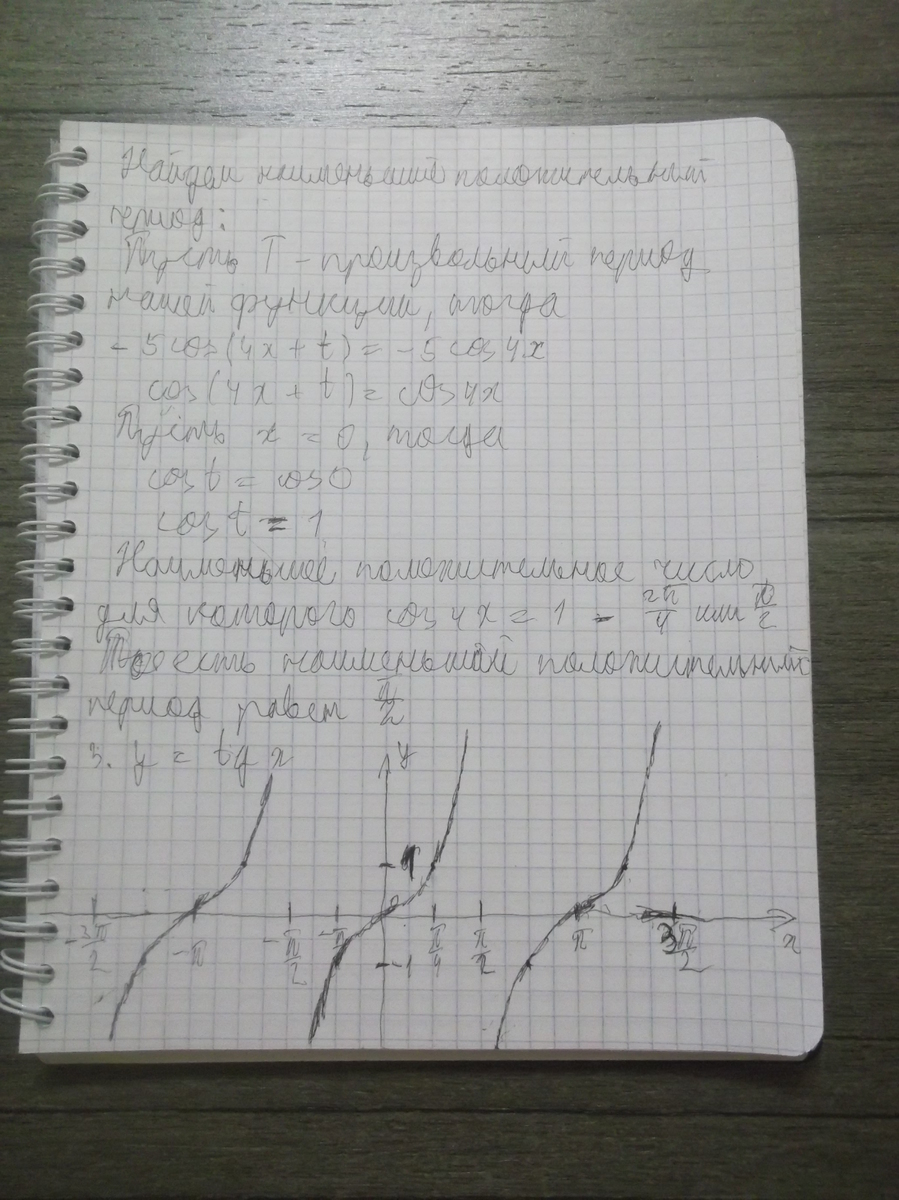 Найдем наименьший положительный
период:
Пусть T - произвольный период
нашей функции, тогда
- 5 cos(4x + t) = - 5 cos 4x
cos(4x + t) = cos 4x
Пусть x = 0, тогда
cos t = cos 0
cos t = 1
Наименьшее положительное число,
для которого cos 4x = 1 - 2π/4 или π/2
То есть наименьший положительный
период равен π/2
3. y = tg x
y
1
0
-3π/2 -π -π/2 π/4 π/2 π 3π/2 x
-1